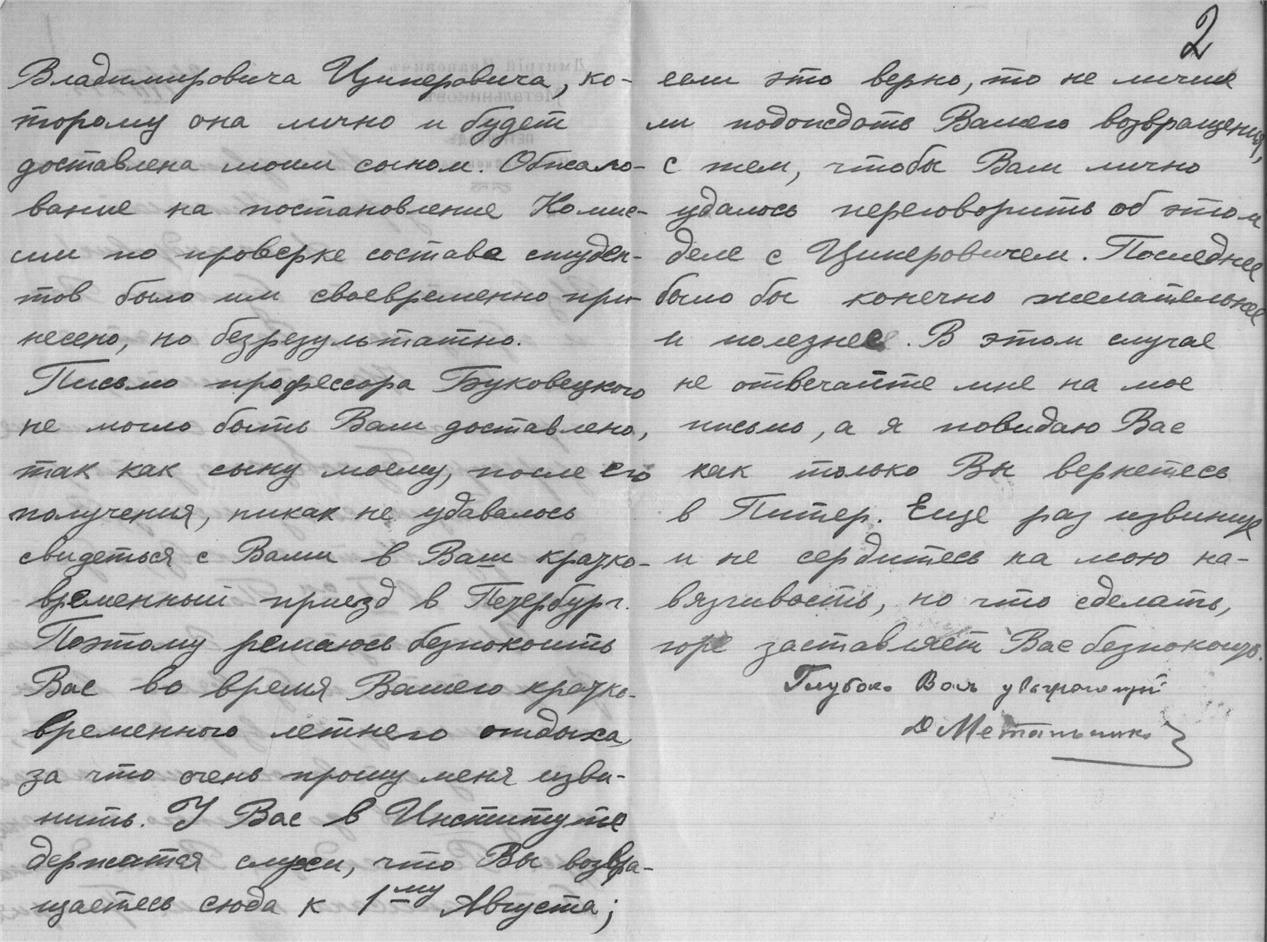 2
Владимировича Циперовича, ко-
торому она лично и будет
доставлена моим сыном. Обжало-
вание на постановление Комис-
сии по проверке состава студен-
тов было им своевременно при-
несено, но безрезультатно.
Письмо профессора Буковецкого
не могло быть Вам доставлено,
так как сыну моему, после его
получения, никак не удавалось
свидеться с Вами в Ваш кратко-
временный приезд в Петербург.
Поэтому решаюсь безпокоить
Вас во время Вашего кратко-
временного летнего отдыха,
за что очень прошу меня изви-
нить. У Вас в Институте
держатся слухи, что Вы возвра-
щаетесь сюда к 1му Августа;
если это верно, то не лучше
ли подождать Вашего возвращения,
с тем, чтобы Вам лично
удалось переговорить об этом
деле с Циперовичем. Последнее
было бы конечно желательнее
и полезнее. В этом случае
не отвечайте мне на мое
письмо, а я повидаю Вас
как только Вы вернетесь
в Питер. Еще раз извините
и не сердитесь на мою на-
вязчивость, но что сделать,
горе заставляет Вас безпокоить.
Глубоко Вас уважающий
Д Метальников